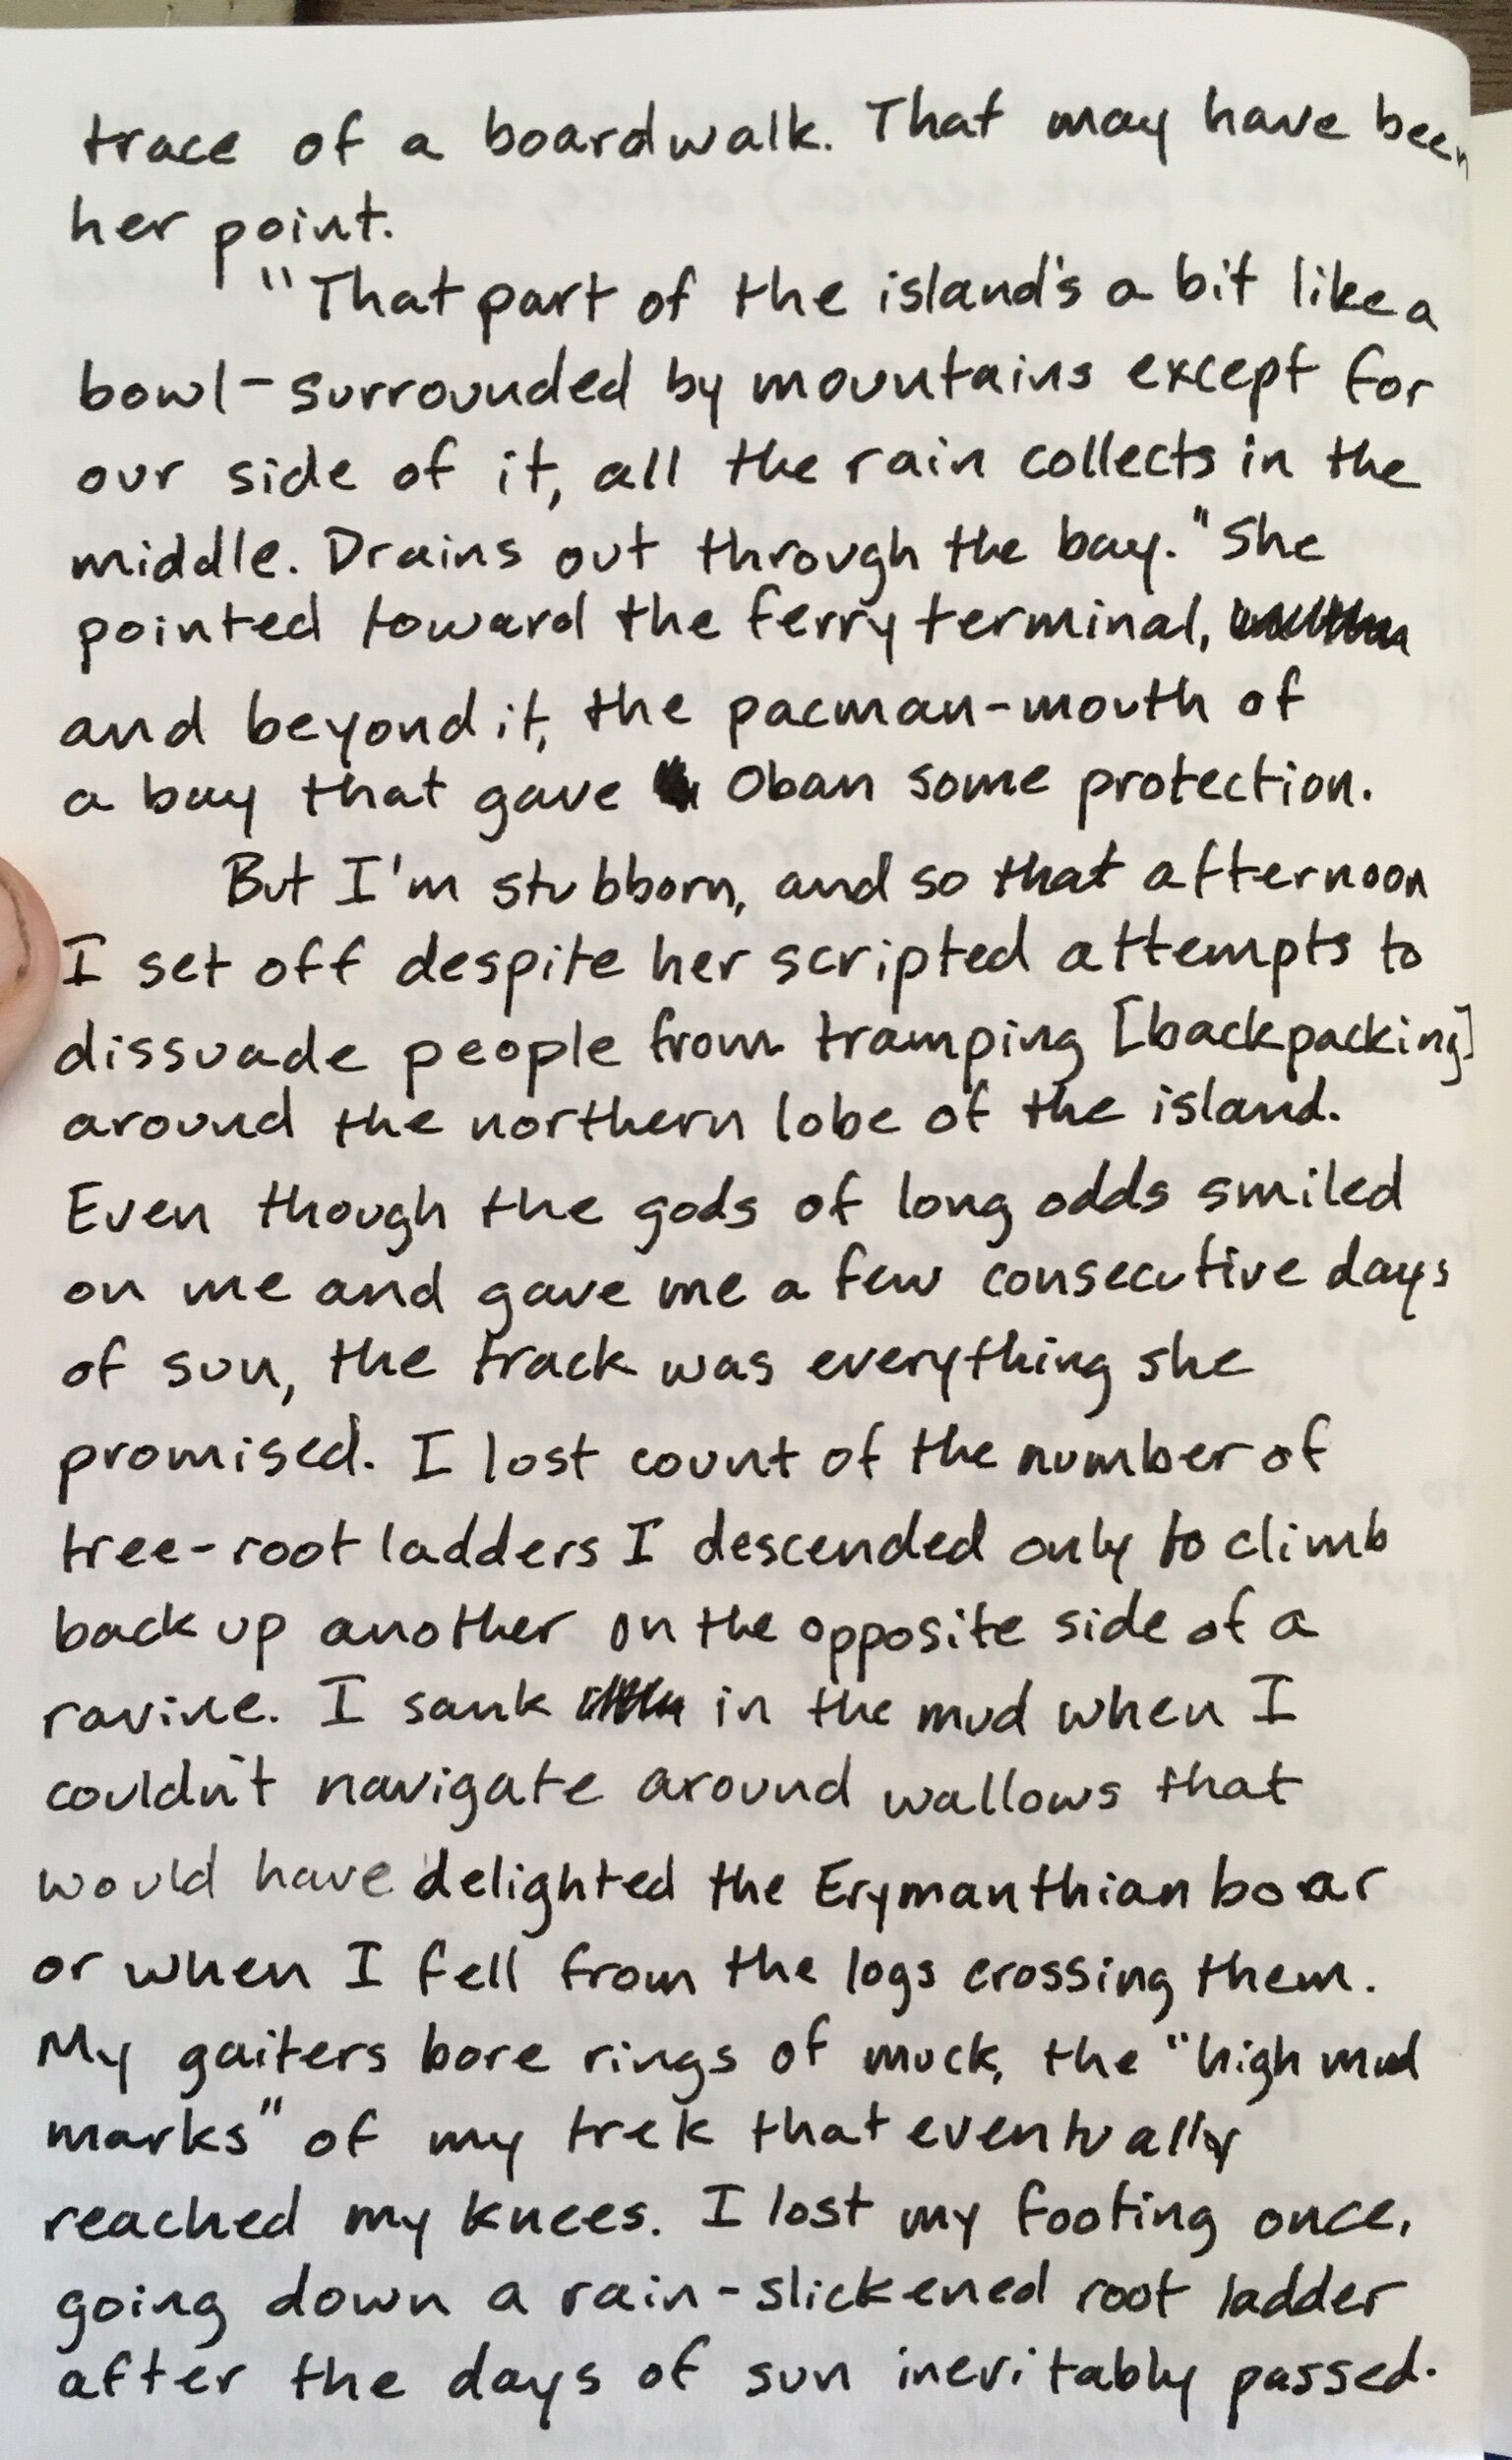 trace of a boardwalk. That may have been
her point.
"That part of the island's a bit like a
bowl-surrounded by mountains except for
our side of it, all the rain collects in the
middle. Drains out through the bay." She
pointed toward the ferry terminal,
and beyond it, the pacman-mouth of
a bay that gave Oban some protection.
But I'm stubborn, and so that afternoon
I set off despite her scripted attempts to
dissuade people from tramping [backpacking]
around the northern lobe of the island.
Even though the gods of long odds smiled
on me and gave me a few consecutive days
of sun, the track was everything she
promised. I lost count of the number of
tree-root ladders I descended only to climb
back up another on the opposite side of a
ravine. I sank in the mud when I
couldn't navigate around wallows that
would have delighted the Erymanthian boar
or when I fell from the logs crossing them.
My gaiters bore rings of muck, the "high mud
marks" of my trek that eventually
reached my knees. I lost my footing once,
going down a rain-slickened root ladder
after the days of sun inevitably passed.